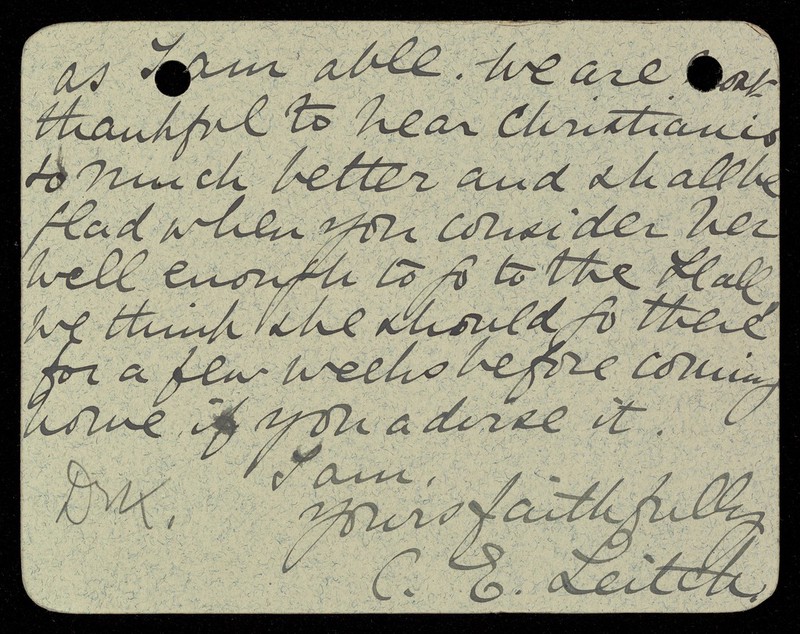 as I am able. We are most
thankful to hear Christian is
so much better and shall be
glad when you consider her
well enough to go to the Hall
we think she should go there
for a few weeks before coming
home if you advise it.
I am,
Dr K.
yours faithfully
C. E. Leitch.